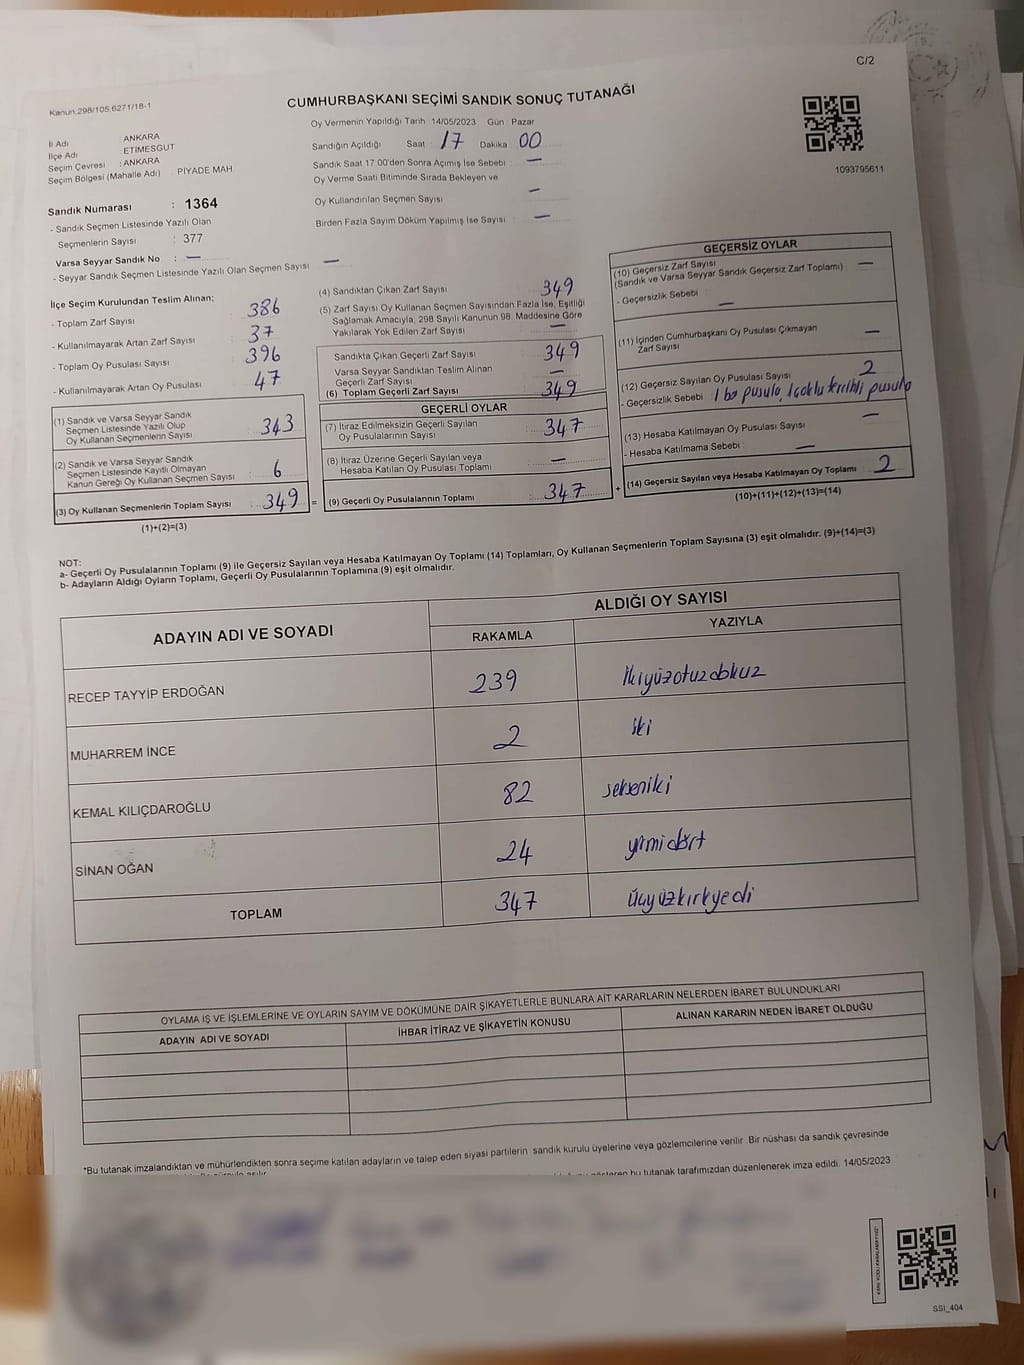 C/2
Kanun:298/105;6271/18-1
CUMHURBAŞKANI SEÇİMİ SANDIK SONUÇ TUTANAĞI
İl Adı : ANKARA
İlçe Adı : ETIMESGUT
Seçim Çevresi : ANKARA
Seçim Bölgesi (Mahalle Adı) : PIYADE MAH
Oy Vermenin Yapıldığı Tarih 14/05/2023 Gün : Pazar
Sandığın Açıldığı Saat : 17 Dakika 00
Sandık Saat 17:00'den Sonra Açımış İse Sebebi : —
Oy Verme Saati Bitiminde Sırada Bekleyen ve
Oy Kullandırılan Seçmen Sayısı : —
Birden Fazla Sayım Döküm Yapılmış İse Sayısı : —
1093795611
Sandık Numarası : 1364
- Sandık Seçmen Listesinde Yazılı Olan
Seçmenlerin Sayısı : 377
Varsa Seyyar Sandık No : —
- Seyyar Sandık Seçmen Listesinde Yazılı Olan Seçmen Sayısı : —
İlçe Seçim Kurulundan Teslim Alınan;
- Toplam Zarf Sayısı : 386
- Kullanılmayarak Artan Zarf Sayısı : 37
- Toplam Oy Pusulası Sayısı : 396
- Kullanılmayarak Artan Oy Pusulası : 47
(1) Sandık ve Varsa Seyyar Sandık
Seçmen Listesinde Yazılı Olup
Oy Kullanan Seçmenlerin Sayısı : 343
(2) Sandık ve Varsa Seyyar Sandık
Seçmen Listesinde Kayıtlı Olmayan
Kanun Gereği Oy Kullanan Seçmen Sayısı : 6
(3) Oy Kullanan Seçmenlerin Toplam Sayısı : 349
(1)+(2)=(3)
(4) Sandıktan Çıkan Zarf Sayısı : 349
(5) Zarf Sayısı Oy Kullanan Seçmen Sayısından Fazla İse, Eşitliği
Sağlamak Amacıyla; 298 Sayılı Kanunun 98. Maddesine Göre
Yakılarak Yok Edilen Zarf Sayısı : —
Sandıkta Çıkan Geçerli Zarf Sayısı : 349
Varsa Seyyar Sandıktan Teslim Alınan
Geçerli Zarf Sayısı : —
(6) Toplam Geçerli Zarf Sayısı : 349
GEÇERLİ OYLAR
(7) İtiraz Edilmeksizin Geçerli Sayılan
Oy Pusulalarının Sayısı : 347
(8) İtiraz Üzerine Geçerli Sayılan veya
Hesaba Katılan Oy Pusulası Toplamı : —
= (9) Geçerli Oy Pusulalarının Toplamı : 347
GEÇERSİZ OYLAR
(10) Geçersiz Zarf Sayısı : —
(Sandık ve Varsa Seyyar Sandık Geçersiz Zarf Toplamı)
- Geçersizlik Sebebi : —
(11) İçinden Cumhurbaşkanı Oy Pusulası Çıkmayan
Zarf Sayısı : —
(12) Geçersiz Sayılan Oy Pusulası Sayısı : 2
- Geçersizlik Sebebi : 1 boş pusula, 1 çoklu tercihli pusula
(13) Hesaba Katılmayan Oy Pusulası Sayısı : —
- Hesaba Katılmama Sebebi : —
+ (14) Geçersiz Sayılan veya Hesaba Katılmayan Oy Toplamı : 2
(10)+(11)+(12)+(13)=(14)
NOT:
a- Geçerli Oy Pusulalarının Toplamı (9) ile Geçersiz Sayılan veya Hesaba Katılmayan Oy Toplamı (14) Toplamları, Oy Kullanan Seçmenlerin Toplam Sayısına (3) eşit olmalıdır. (9)+(14)=(3)
b- Adayların Aldığı Oyların Toplamı, Geçerli Oy Pusulalarının Toplamına (9) eşit olmalıdır.
ADAYIN ADI VE SOYADI
ALDIĞI OY SAYISI
RAKAMLA YAZIYLA
RECEP TAYYİP ERDOĞAN 239 İkiyüzotuzdokuz
MUHARREM İNCE 2 iki
KEMAL KILIÇDAROĞLU 82 sekseniki
SİNAN OĞAN 24 yirmidört
TOPLAM 347 üçyüzkırkyedi
OYLAMA İŞ VE İŞLEMLERİNE VE OYLARIN SAYIM VE DÖKÜMÜNE DAİR ŞİKAYETLERLE BUNLARA AİT KARARLARIN NELERDEN İBARET BULUNDUKLARI
ADAYIN ADI VE SOYADI İHBAR İTİRAZ VE ŞİKAYETİN KONUSU ALINAN KARARIN NEDEN İBARET OLDUĞU
*Bu tutanak imzalandıktan ve mühürlendikten sonra seçime katılan adayların ve talep eden siyasi partilerin sandık kurulu üyelerine veya gözlemcilerine verilir. Bir nüshası da sandık çevresinde
bu tutanak tarafımızdan düzenlenerek imza edildi. 14/05/2023
SSI_404